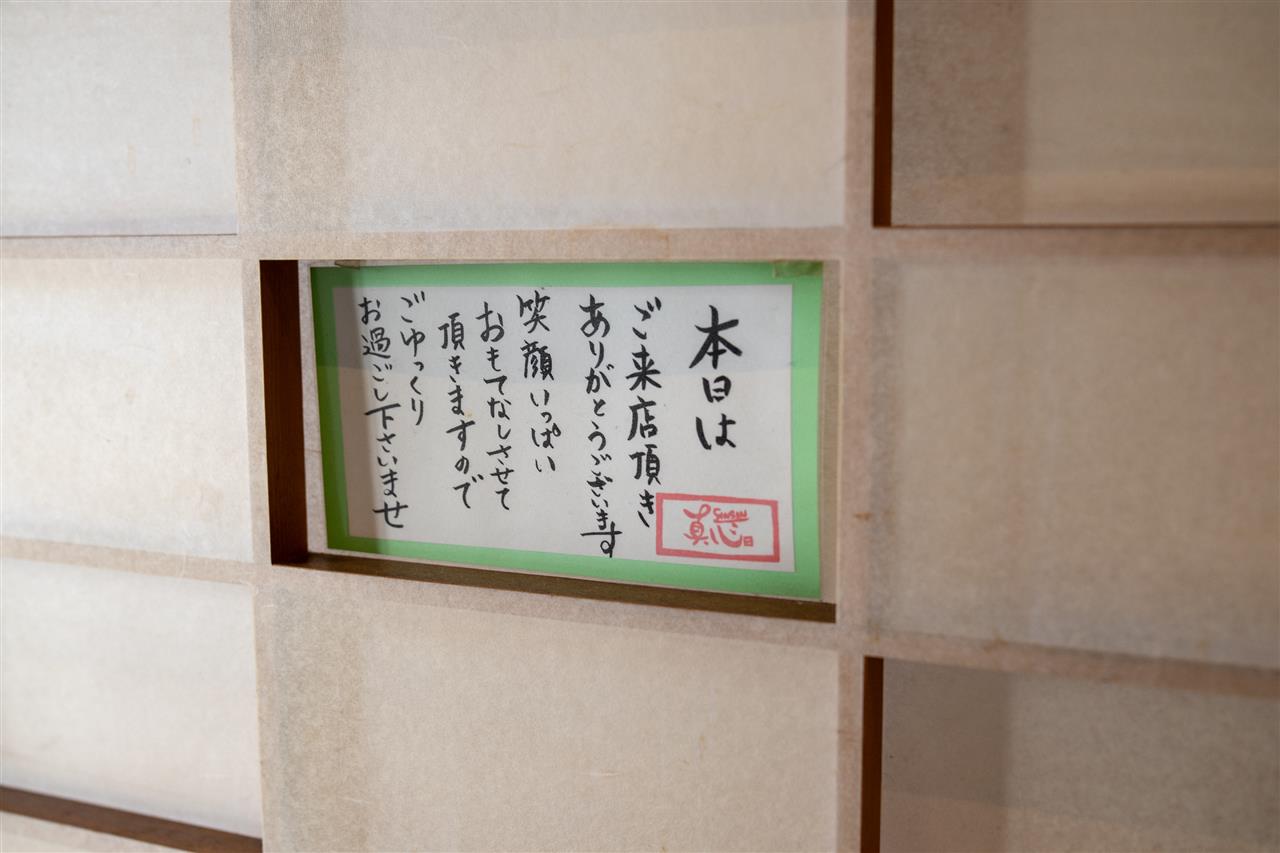 本日は
ご来店頂き
ありがとうございます
笑顔いっぱい
おもてなしさせて
頂きますので
ごゆっくり
お過ごし下さいませ
真心